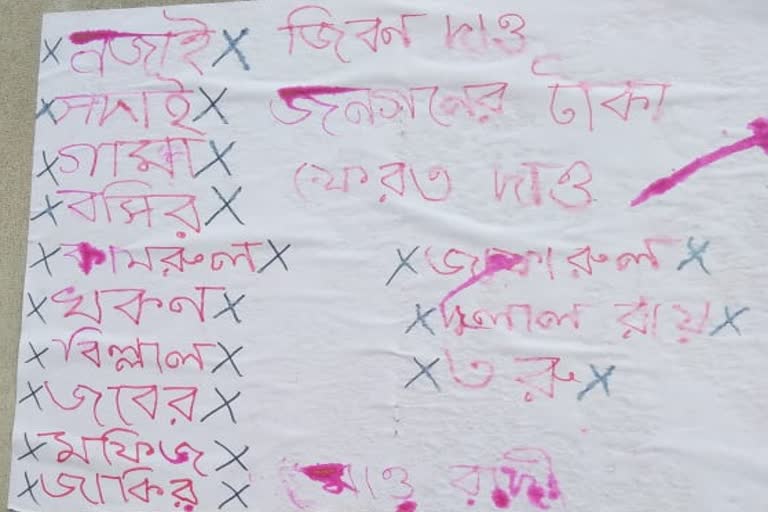 ×নজাই× জিবন দাও
×সদাই× জনগনের টাকা
×গামা× ফেরত দাও
×বসির×
×কামরুল× ×জাফারুল×
×খকন× ×দুলাল রায়×
×বিল্লাল× ×তরু×
×জবের×
×মফিজ×
×জাকির× মাও বাদী